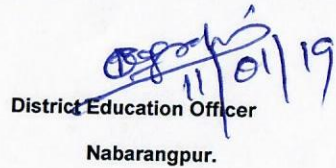 11/01/19
District Education Officer
Nabarangpur.